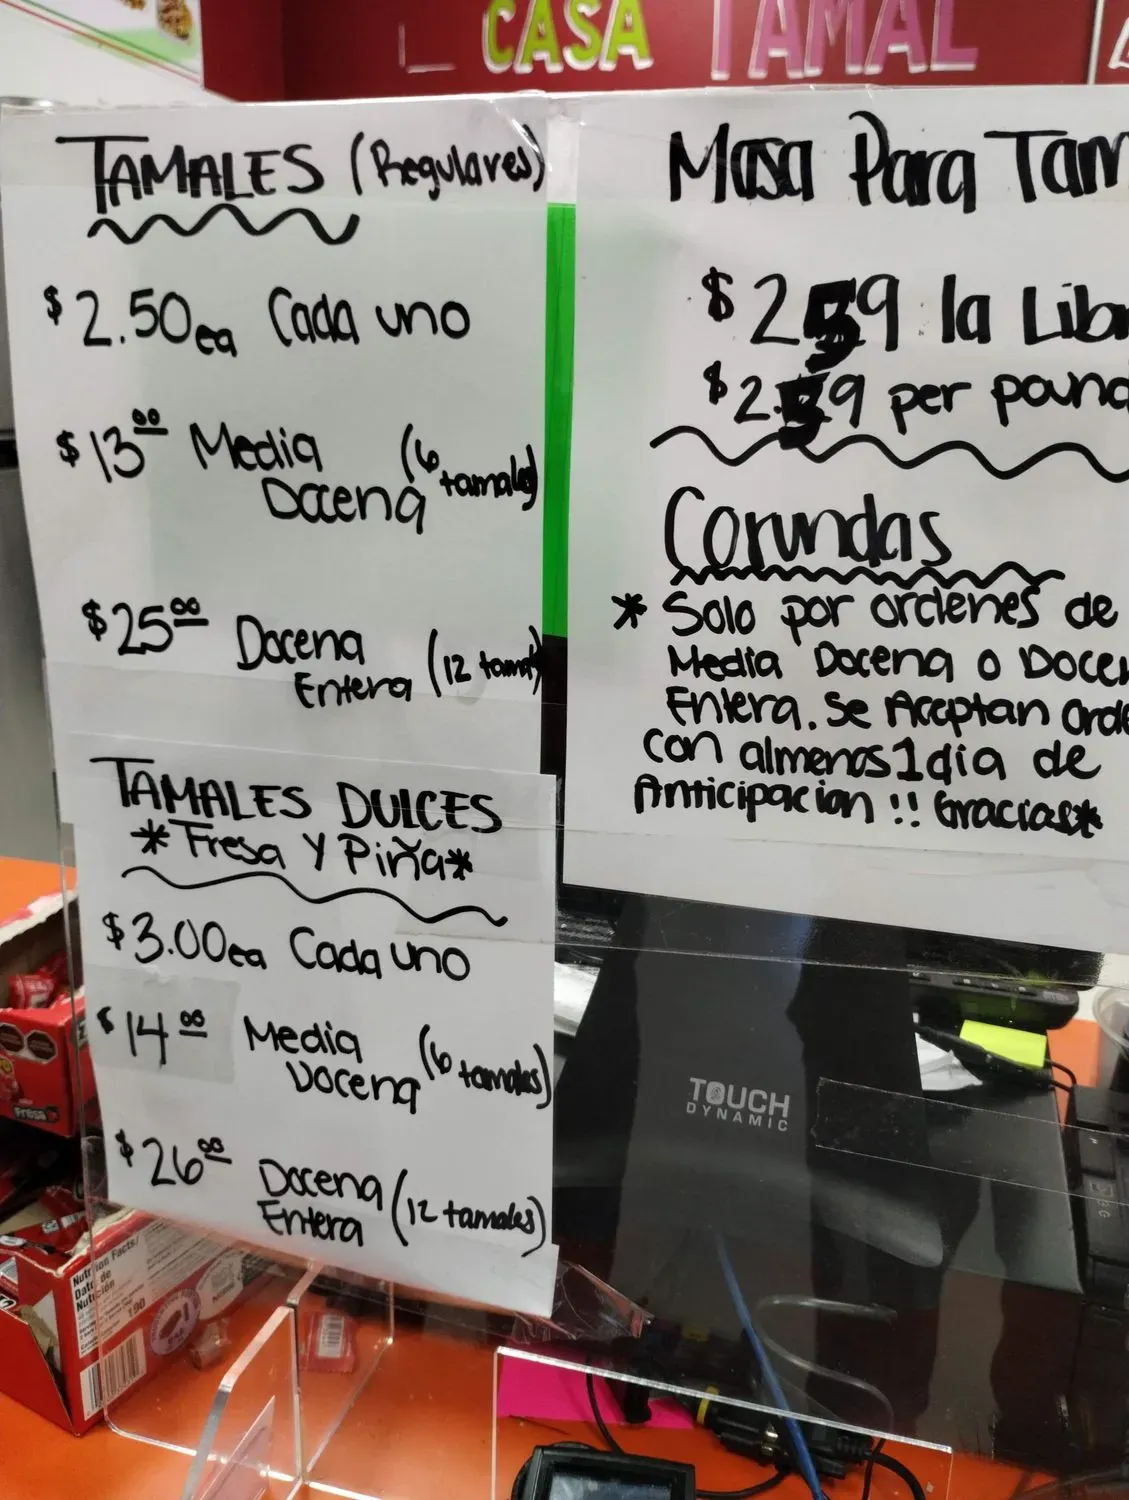 CASA TAMAL
TAMALES (Regulares)
$2.50ea Cada uno
$13.00 Media Docena (6 tamales)
$25.00 Docena Entera (12
TAMALES DULCES
*Fresa Y Piña*
$3.00ea Cada uno
$14.00 Media Docena (6 tamales)
$26.00 Docena Entera (12 tamales)
Masa Para Tam
$2.59 la Lib
$2.59 per pound
Corundas
* Solo por ordenes de
Media Docena o Docen
Entera. Se Aceptan Orde
con almenos 1 dia de
Anticipacion !! Gracias*
TOUCH
DYNAMIC
Fresa
Nutrition Facts/
Datos de
Nutrición
190